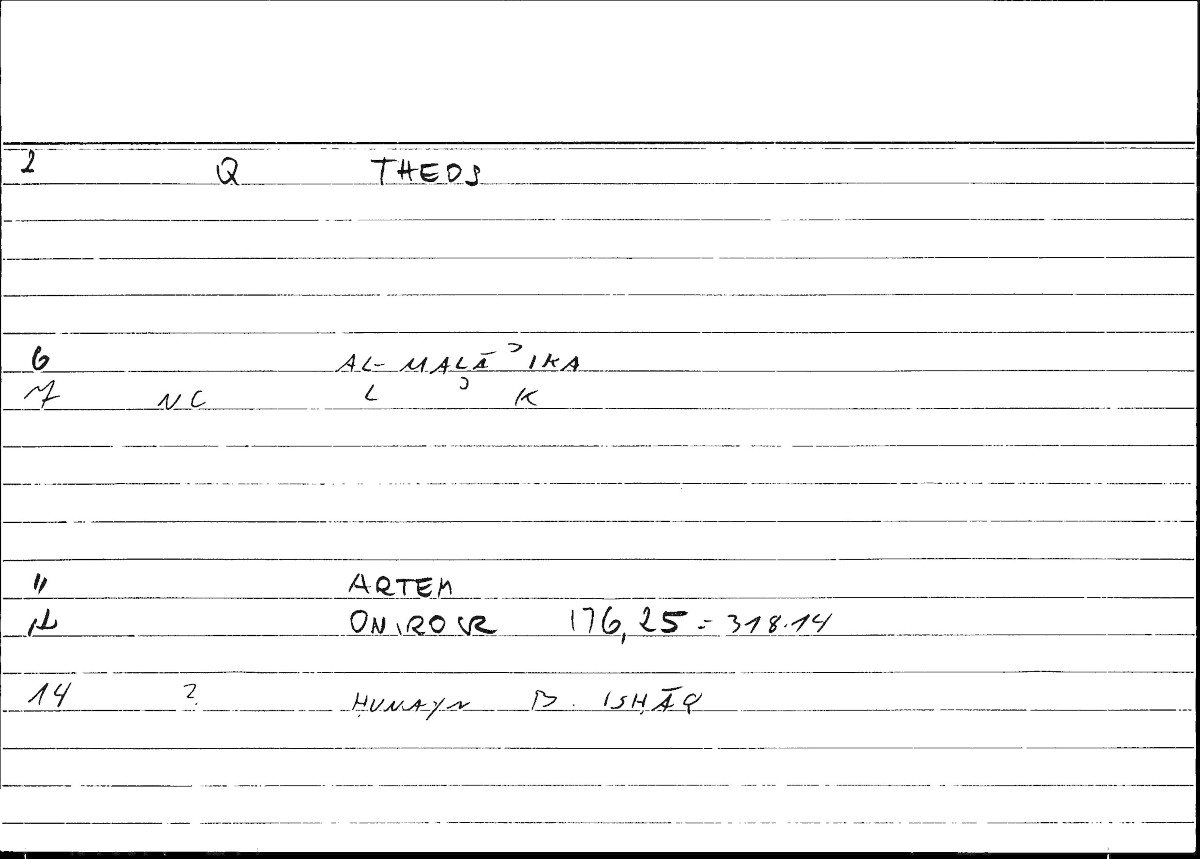 2 Q THEOS
6 AL-MALĀʾIKA
7 NC L ʾ K
11 ARTEM
ONIROCR 176,25 = 318.14
14 ? ḤUNAYN B. ISḤĀQ